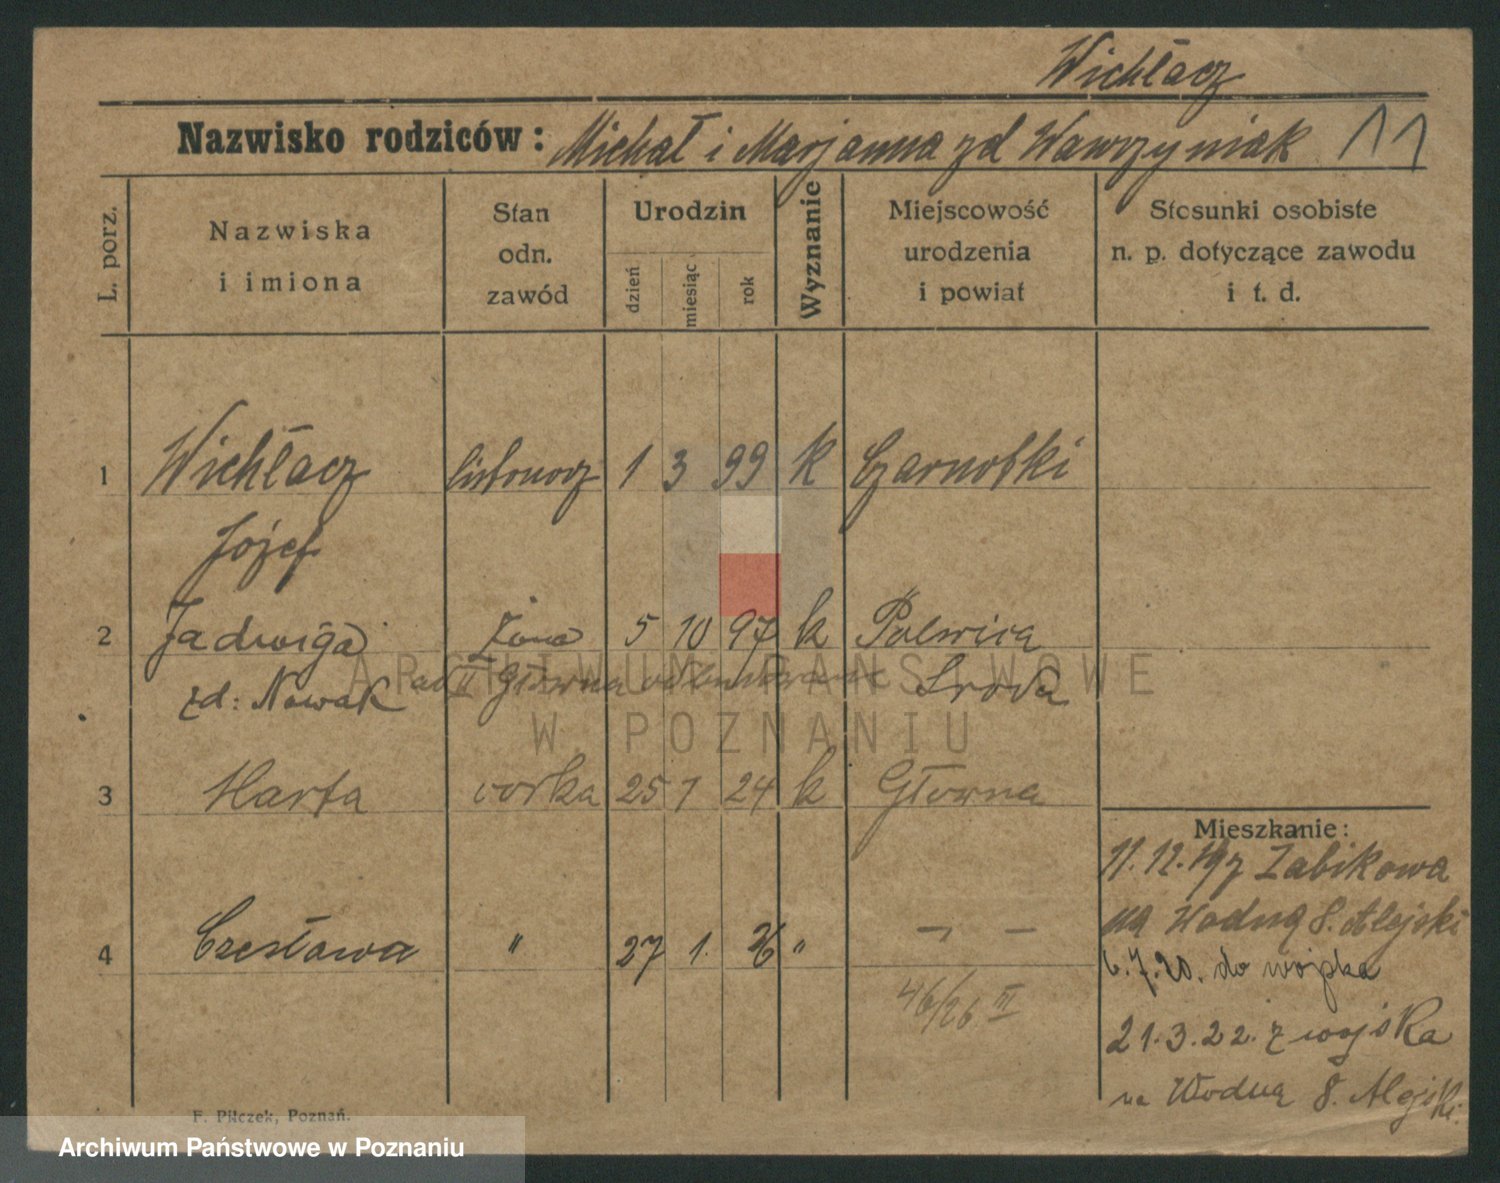 Wichłacz
Nazwisko rodziców: Michał i Marjanna zd Wawrzyniak 11
L. porz.
Nazwiska i imiona
Stan odn. zawód
Urodzin
dzień miesiąc rok
Wyznanie
Miejscowość urodzenia i powiat
Stosunki osobiste n. p. dotyczące zawodu i t. d.
1 Wichłacz listonosz 1 3 99 k Czarnotki
Józef
2 Jadwiga żona 5 10 97 k Polwica
zd: Nowak II Główna Sroda
3 Marta corka 25 1 24 k Główna
4 Czesława " 27 1. 26 " — —
46/26 III
Mieszkanie:
11.12.19 z Żabikowa
na Wodną 8. Alejski
6.7.20. do wojska
21.3.22. z wojska
na Wodną 8. Alejski.
F. Pilczek, Poznań.
ARCHIWUM PAŃSTWOWE
W POZNANIU
Archiwum Państwowe w Poznaniu